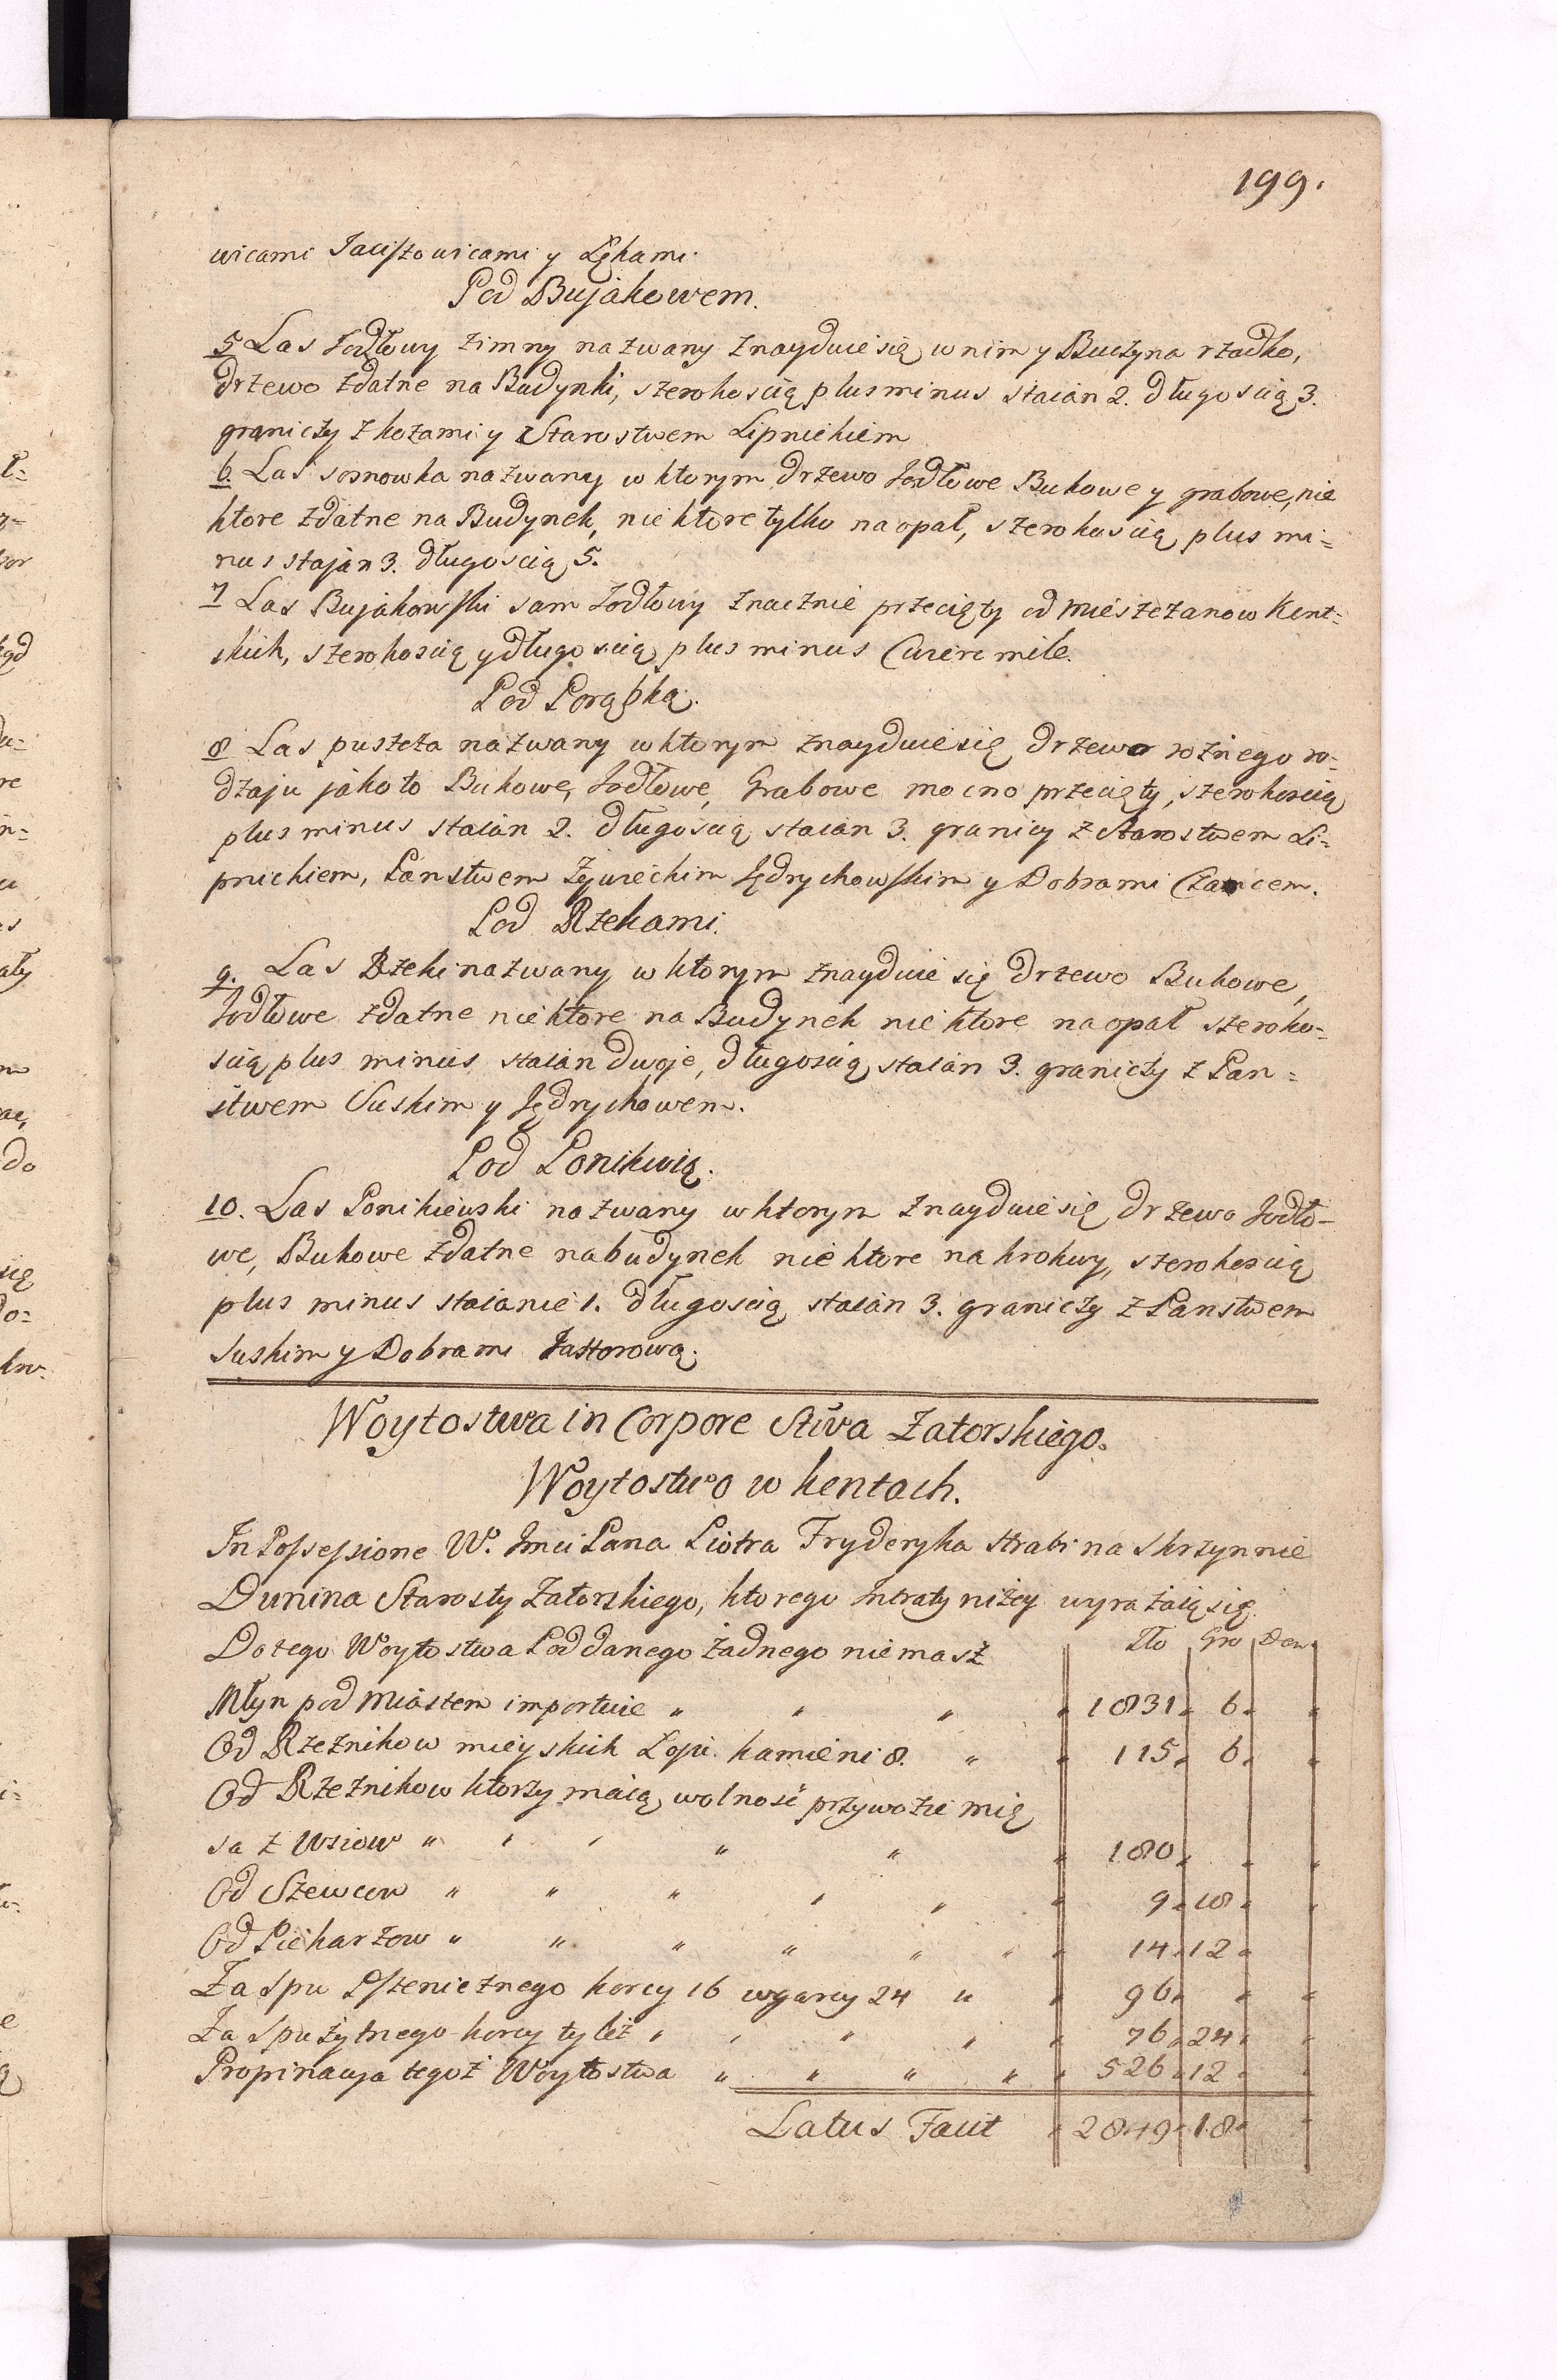 199.
wicami Jaciszowicami y Lękami.
Pod Bujakowem.
5 Las Jodłowy zimny nazwany znayduie się w nim y Buczyna rzadko,
drzewo zdatne na Budynki, szerokoscią plus minus staian 2. długoscią 3.
graniczy z kozami y Starostwem Lipnickiem
6. Las sosnowka nazwany w ktorym drzewo Jodłowe Bukowe y grabowe, nie
ktore zdatne na Budynek, nie ktore tylko na opał, szerokoscią plus mi=
nus stajan 3. długoscią 5.
7 Las Bujakowski sam Jodłowy znacznie przecięty od mieszczanow Kent=
skich, szerokoscią y długoscią plus minus Cwierc mile.
Pod Porąbką.
8 Las puszcza nazwany w ktorym znayduie się drzewo roznego ro=
dzaju jako to Bukowe, Jodłowe, Grabowe mocno przecięty, szerokoscią
plus minus staian 2. długoscią staian 3. granicy z Starostwem Li=
pnickiem, Panstwem Zywieckim Jędrychowskim y Dobrami Czancem.
Pod Rzekami.
9. Las Rzeki nazwany w ktorym znayduie się drzewo Bukowe,
Jodłowe zdatne nie ktore na Budynek nie ktore na opał szeroko=
scią plus minus staian dwoje, długoscią staian 3. graniczy z Pan=
stwem Suskim y Jędrychowem.
Pod Ponikwią.
10. Las Ponikiewski nazwany w ktorym znayduie się drzewo Jodło=
we, Bukowe zdatne na budynek nie ktore na krokwy, szerokoscią
plus minus staianie 1. długoscią staian 3. graniczy z Panstwem
Suskim y Dobrami
Woytostwa in Corpore Stwa Zatorskiego.
Woytostwo w kentach.
In Possessione W. Jmci Pana Piotra Fryderyka Hrabi na Skrzynnie
Dunina Starosty Zatorskiego, ktorego Intraty niżey wyrażaią się.
Do tego Woytostwa Poddanego żadnego nie masz Zło Gro Den
Młyn pod Miastem importuie " " " " 1831 " 6 " "
Od Rzeznikow mieyskich Łoju kamieni 8. " " 115 " 6 " "
Od Rzeznikow ktorzy maią wolnosć przywozić mię
sa z Wsiow " " " " " " 180 " " "
Od Szewcow " " " " " " 9 " 18 " "
Od Piekarzow " " " " " " " 14 " 12 "
Za Spu Pszenicznego korcy 16 w garcy 24 " " 96 " " "
Za Spu żytnego korcy tyleż " " " " " 76 " 24 " "
Propinacya tegoż Woytostwa " " " " " 526 " 12 " "
Latus Facit " 2849 " 18 " "